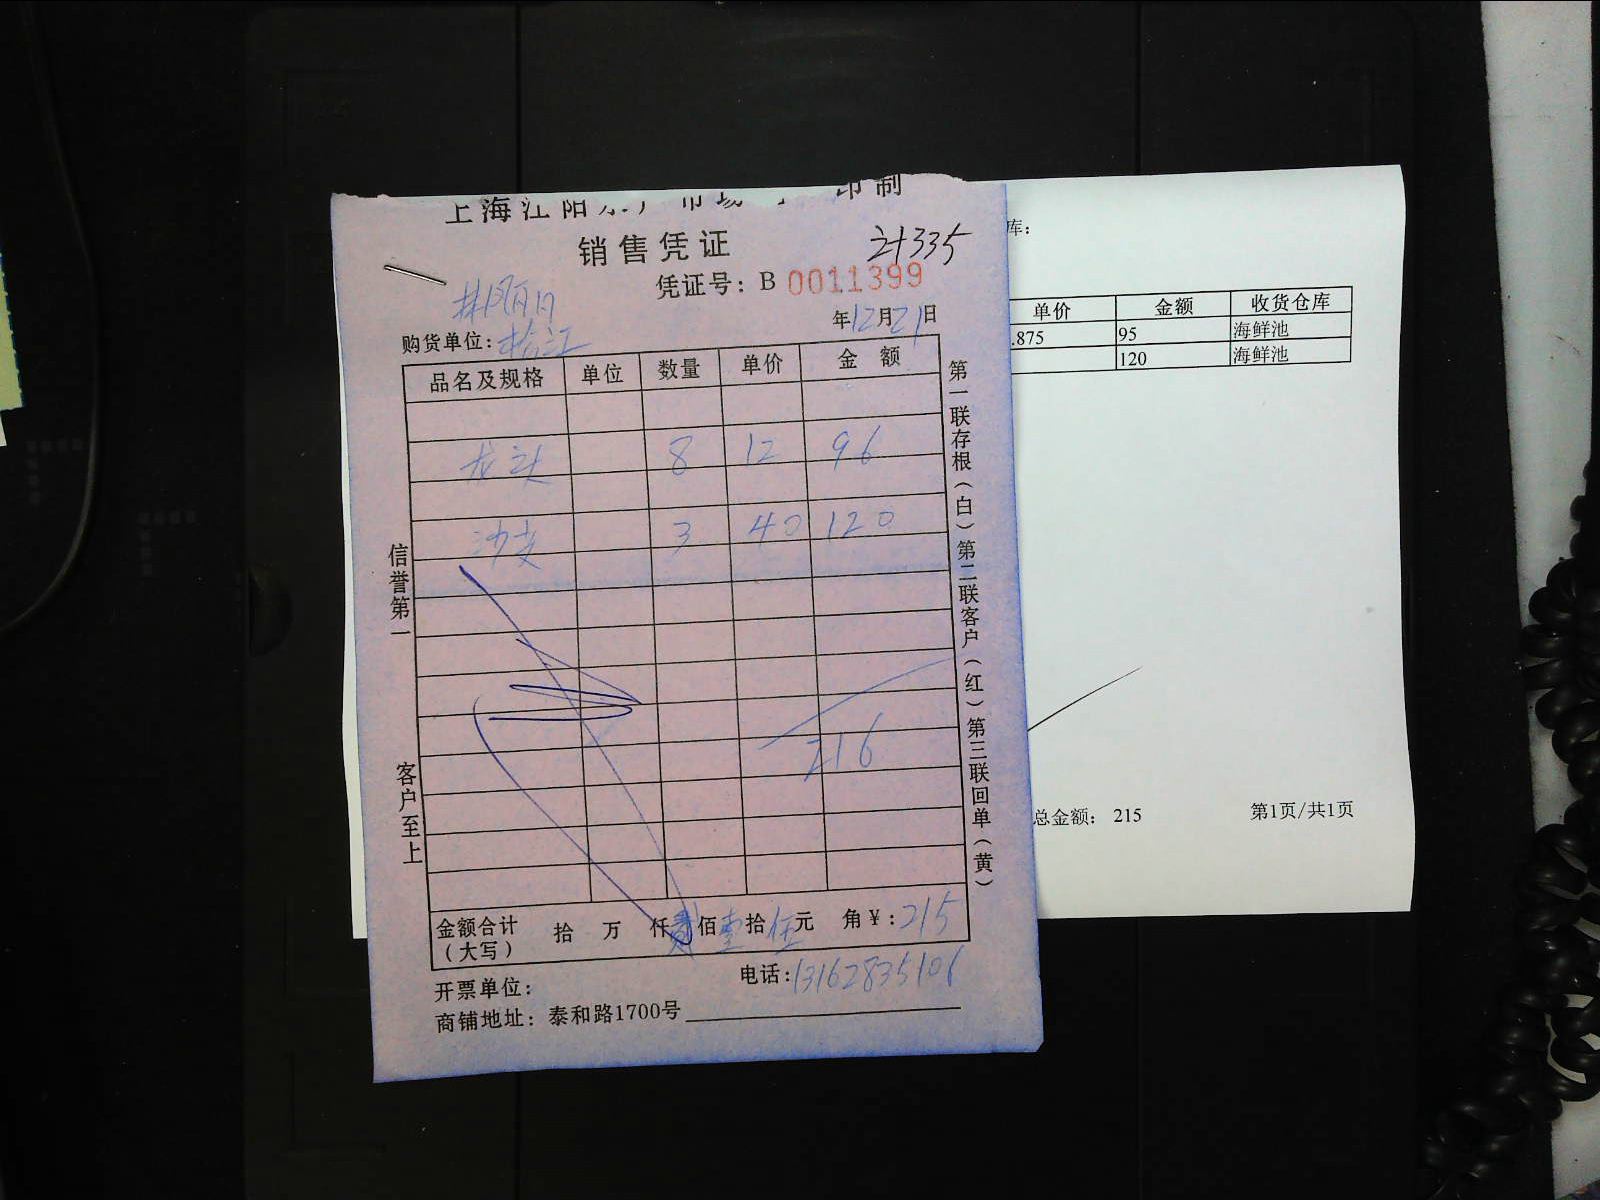 上海江阳水产市场 印制
销售凭证
21335
凭证号：B 0011399
年12月21日
购货单位：松江
品名及规格 单位 数量 单价 金 额
龙头 8 12 96
沙支 3 40 120
216
金额合计（大写） 拾 万 仟贰佰壹拾伍元 角￥：215
开票单位：
电话：13162835106
商铺地址：泰和路1700号
信誉第一
客户至上
第一联存根（白）第二联客户（红）第三联回单（黄）
库：
单价 金额 收货仓库
.875 95 海鲜池
120 海鲜池
总金额： 215 第1页/共1页